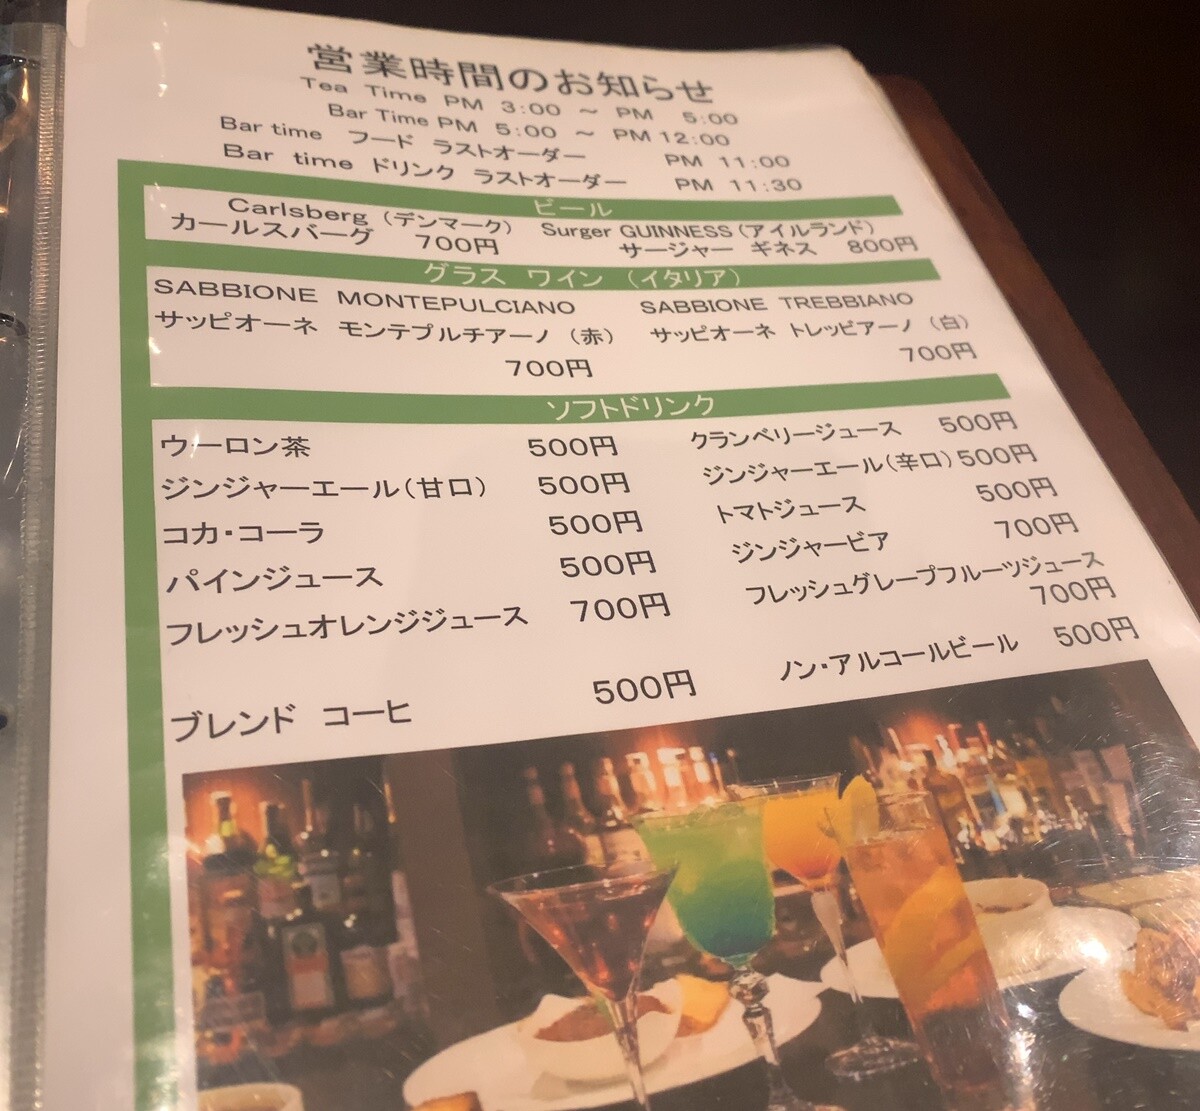 営業時間のお知らせ
Tea Time PM 3:00 ～ PM 5:00
Bar Time PM 5:00 ～ PM 12:00
Bar time フード ラストオーダー PM 11:00
Bar time ドリンク ラストオーダー PM 11:30
ビール
Carlsberg（デンマーク） Surger GUINNESS（アイルランド）
カールスバーグ 700円 サージャー ギネス 800円
グラス ワイン（イタリア）
SABBIONE MONTEPULCIANO SABBIONE TREBBIANO
サッビオーネ モンテプルチアーノ（赤） サッビオーネ トレッビアーノ（白）
700円 700円
ソフトドリンク
ウーロン茶 500円 クランベリージュース 500円
ジンジャーエール（甘口） 500円 ジンジャーエール（辛口）500円
コカ・コーラ 500円 トマトジュース 500円
パインジュース 500円 ジンジャービア 700円
フレッシュオレンジジュース 700円 フレッシュグレープフルーツジュース
700円
ブレンド コーヒ 500円 ノン・アルコールビール 500円